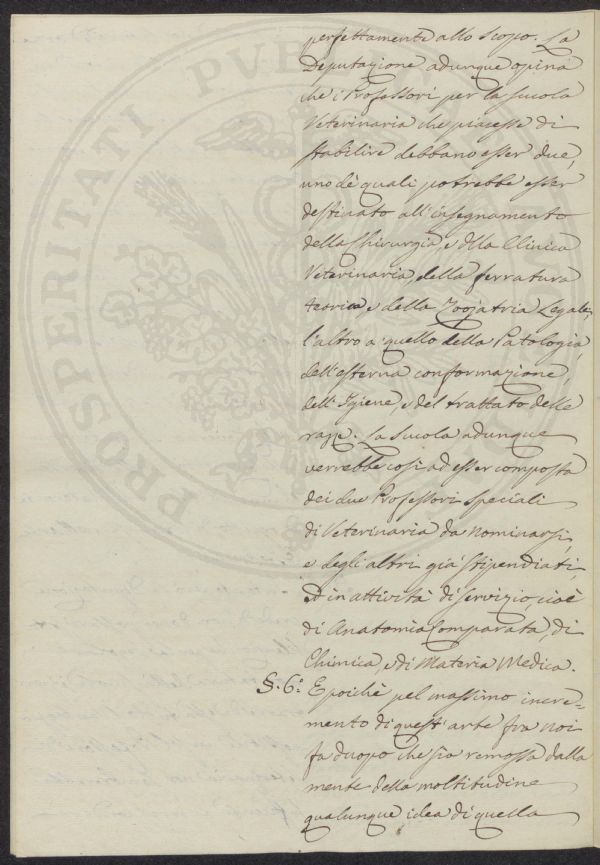 perfettamente allo scopo. La
Deputazione adunque opina
che i Professori per la scuola
Veterinaria che piacesse di
stabilire debbano esser due,
uno de' quali potrebbe esser
destinato all'insegnamento
della Chirurgia e della Clinica
Veterinaria della ferratura
teorica e della Zoojatria Legale,
l'altro a quello della Patologia,
dell'esterna conformazione,
dell'Igiene, e del trattato delle
razze. La Scuola adunque
verrebbe così ad esser composta
dei due Professori speciali
di Veterinaria da nominarsi,
e degli altri già stipendiati,
ed in attività di servizio, cioè
di Anatomia Comparata, di
Chimica, e di Materia Medica.
§. 6.º E poichè pel massimo incre=
mento di quest'arte fra noi
fa duopo che sia remossa dalla
mente della moltitudine
qualunque idea di quella
PROSPERITATI